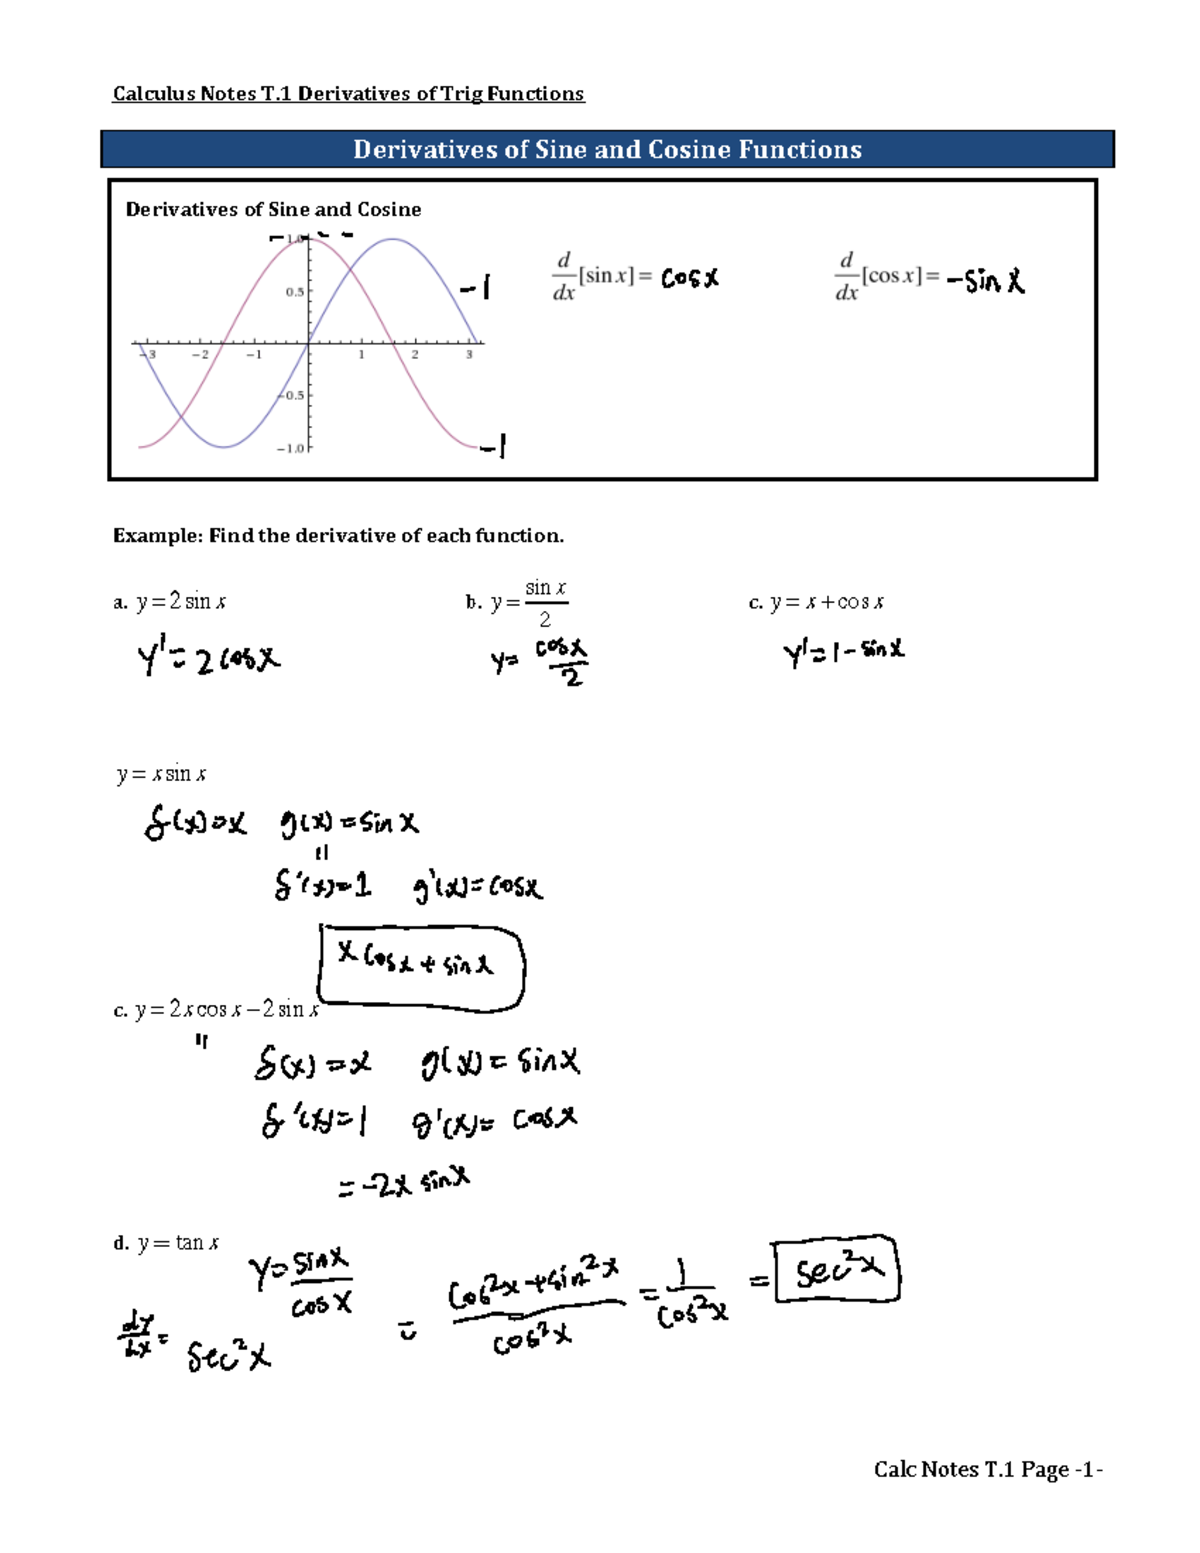 Calculus Notes T.1 Derivatives of Trig Functions
Derivatives of Sine and Cosine Functions
Derivatives of Sine and Cosine
1.0
0.5
-3 -2 -1 1 2 3
-0.5
-1.0
-1
-1
d/dx [sin x] = cos x
d/dx [cos x] = -sin x
Example: Find the derivative of each function.
a. y = 2 sin x
b. y = sin x / 2
c. y = x + cos x
y' = 2 cos x
y = cos x / 2
y' = 1 - sin x
y = x sin x
f(x) = x g(x) = sin x
f'(x) = 1 g'(x) = cos x
x cos x + sin x
c. y = 2x cos x − 2 sin x
f(x) = x g(x) = sin x
f'(x) = 1 g'(x) = cos x
= -2x sin x
d. y = tan x
y = sin x / cos x
dy/dx = sec²x
= cos²x + sin²x / cos²x = 1 / cos²x = sec²x
Calc Notes T.1 Page -1-